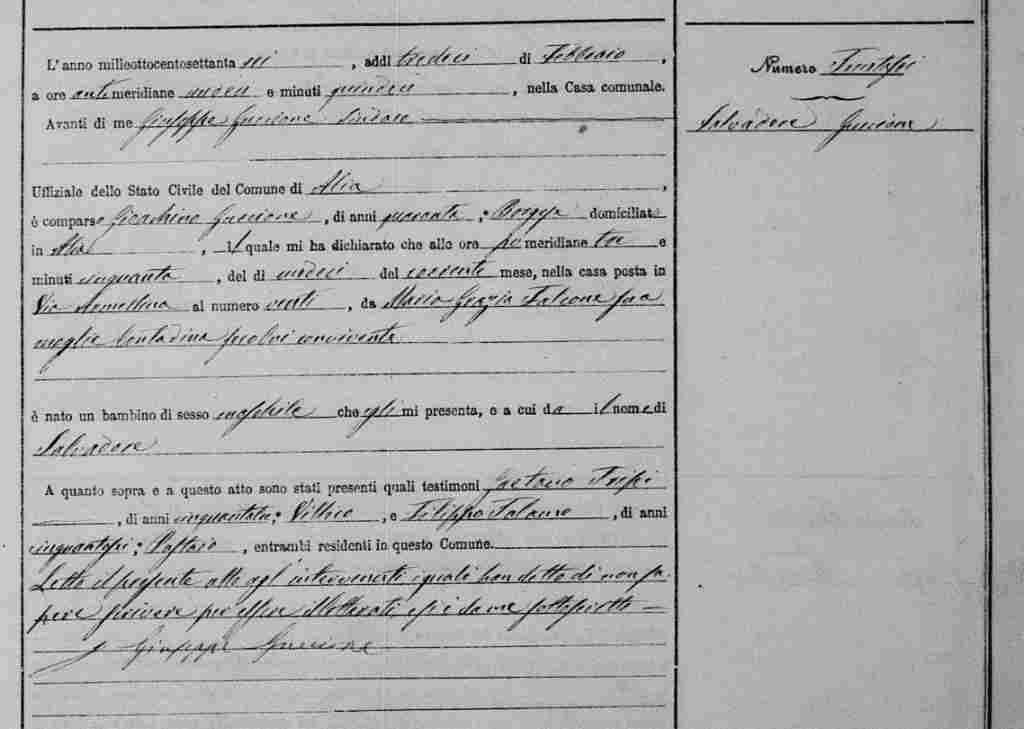 L'anno milleottocentosettanta sei, addì tredici di Febbraio,
a ore antimeridiane nove e minuti quindici, nella Casa comunale.
Avanti di me Giuseppe Guccione Sindaco
Uffiziale dello Stato Civile del Comune di Alia,
è comparso Gioachino Guccione, di anni quaranta; Borgese domiciliato
in Alia, il quale mi ha dichiarato che alle ore po meridiane tre e
minuti cinquanta, del dì undeci del corrente mese, nella casa posta in
Via al numero venti, da Maria Grazia Falcone sua
moglie Contadina seco lui convivente
è nato un bambino di sesso maschile che egli mi presenta, e a cui da il nome di
Salvadore
A quanto sopra e a questo atto sono stati presenti quali testimoni Gaetano
, di anni; Villico, e Filippo, di anni
cinquantasei;, entrambi residenti in questo Comune.
Letto il presente atto agl'intervenuti i quali han detto di non sa-
pere scrivere per essere illetterati, si è da me sottoscritto
Giuseppe Guccione
Numero Trentasei
Salvadore Guccione